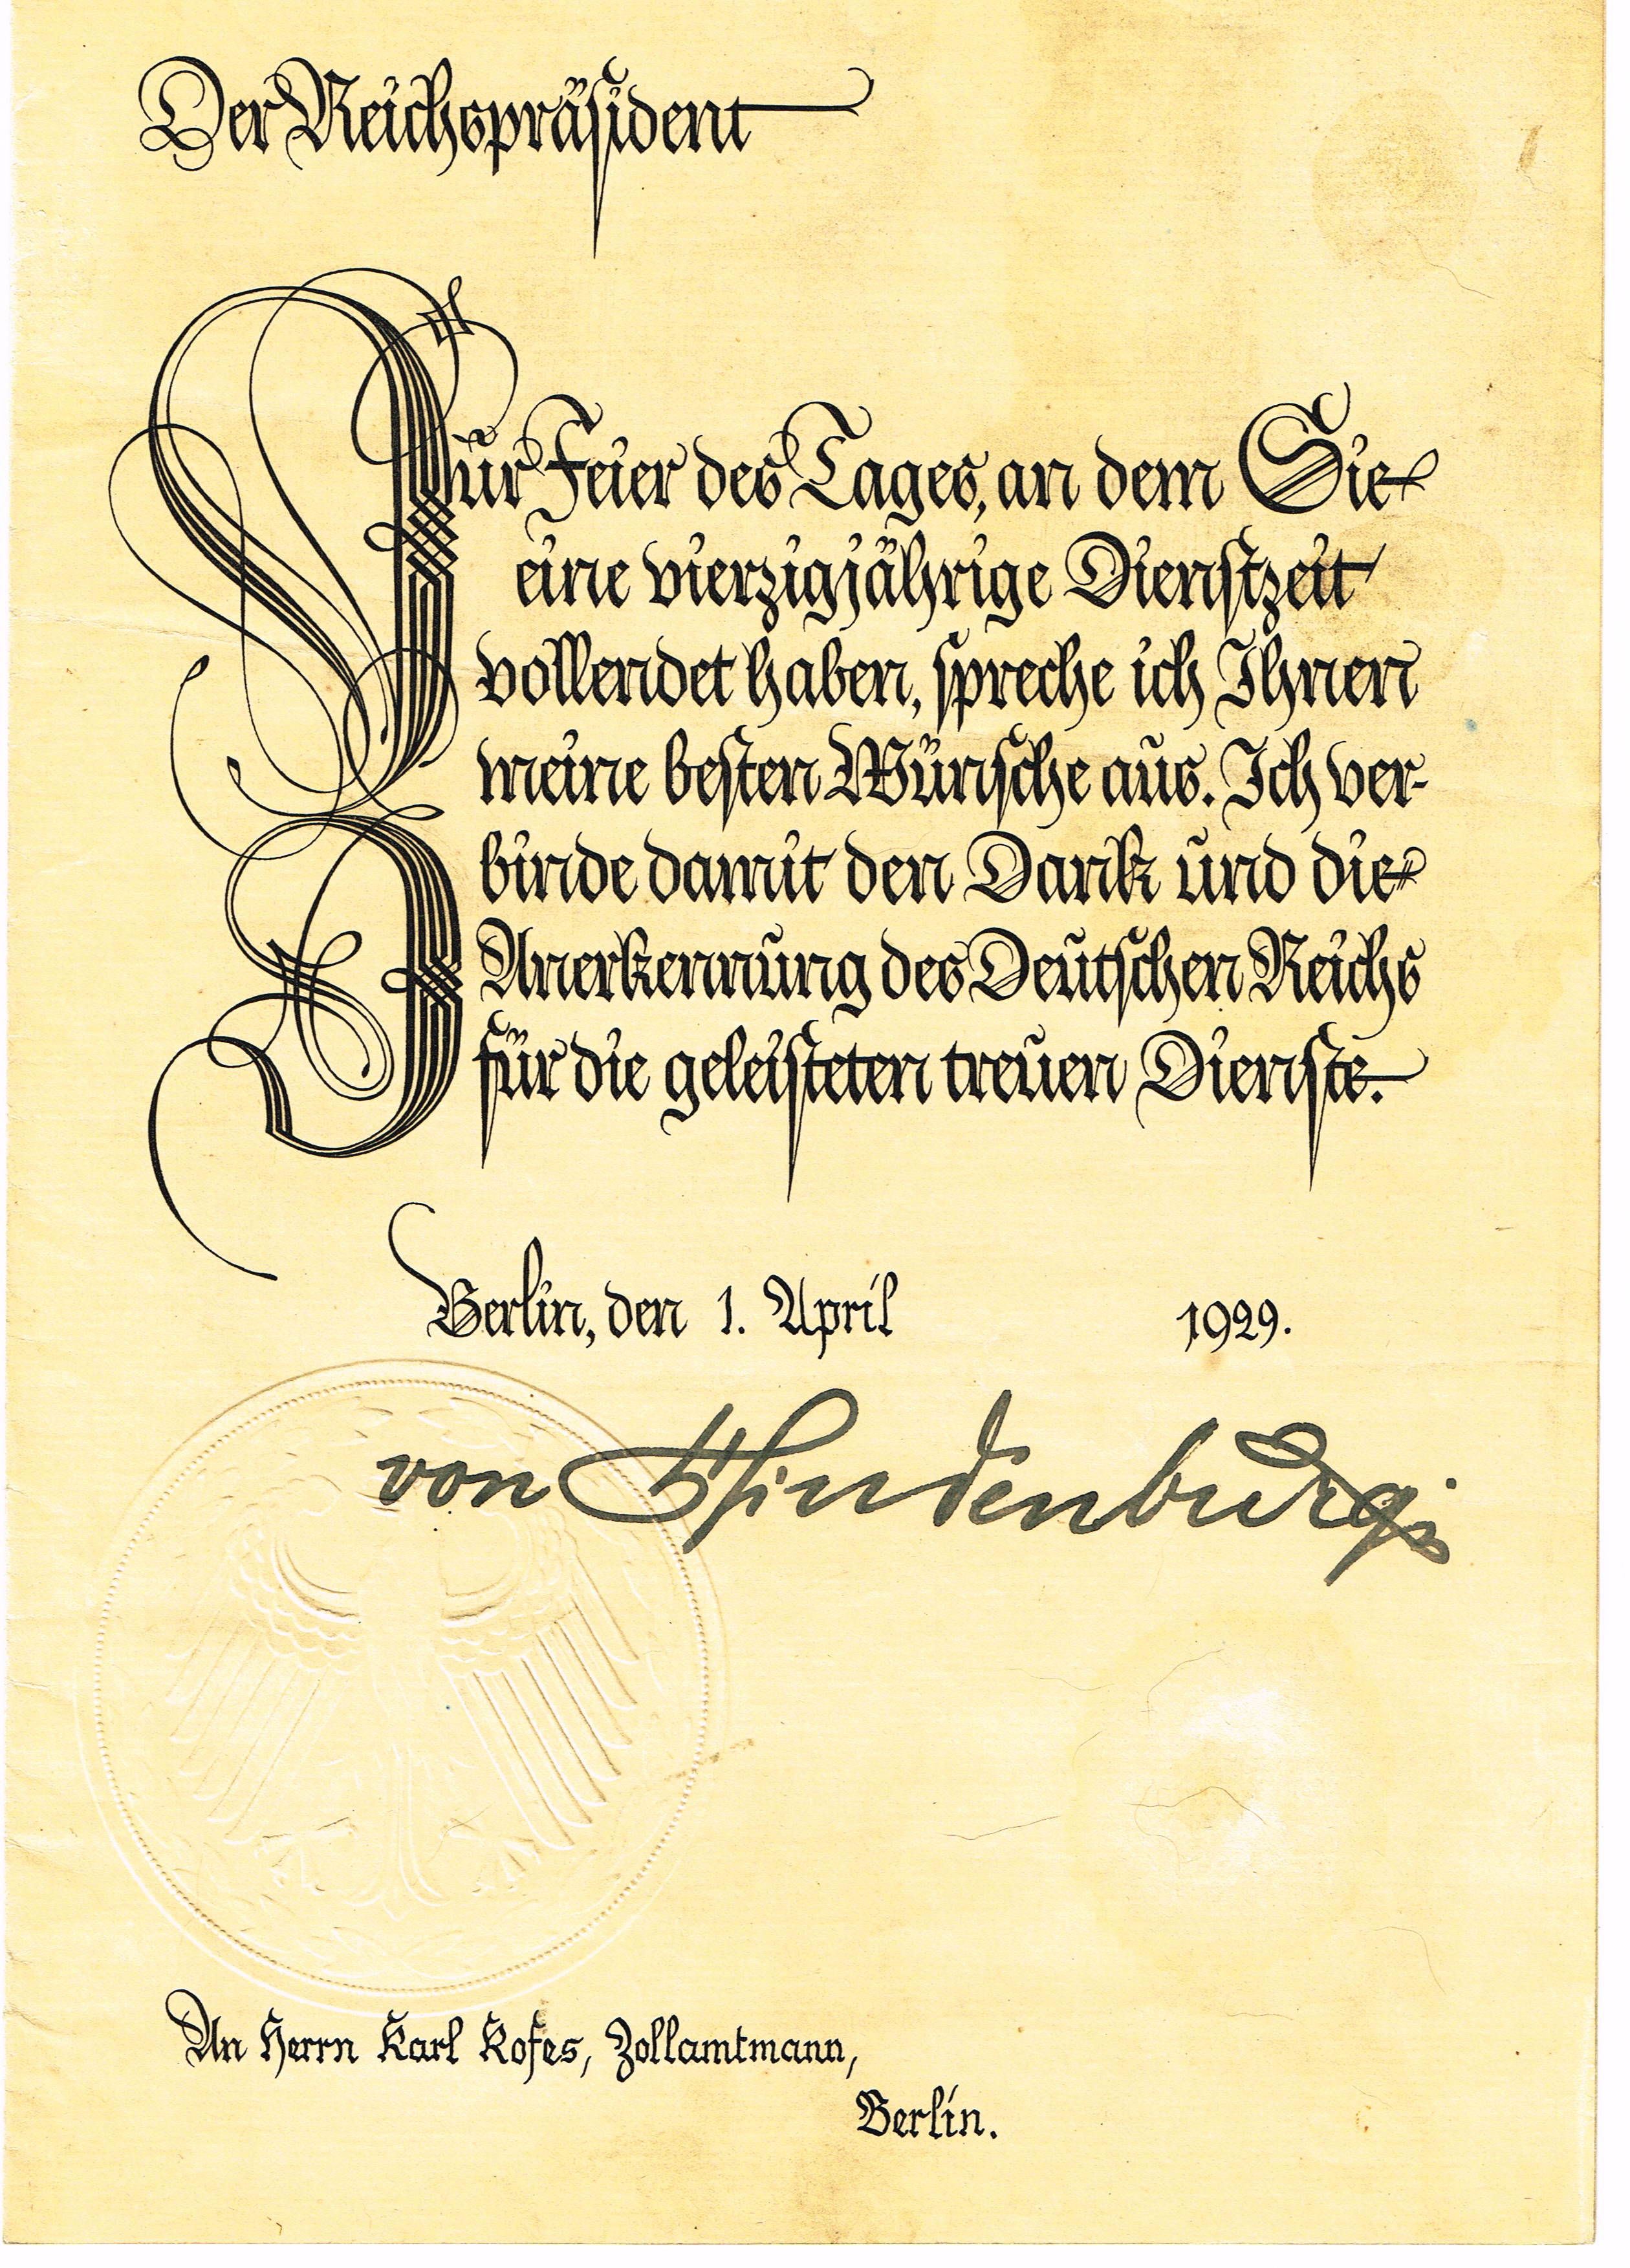 Der Reichspräsident
Zur Feier des Tages, an dem Sie
eine vierzigjährige Dienstzeit
vollendet haben, spreche ich Ihnen
meine besten Wünsche aus. Ich ver-
binde damit den Dank und die
Anerkennung des Deutschen Reichs
für die geleisteten treuen Dienste.
Berlin, den 1. April 1929.
von Hindenburg
An Herrn Karl Kofes, Zollamtmann,
Berlin.